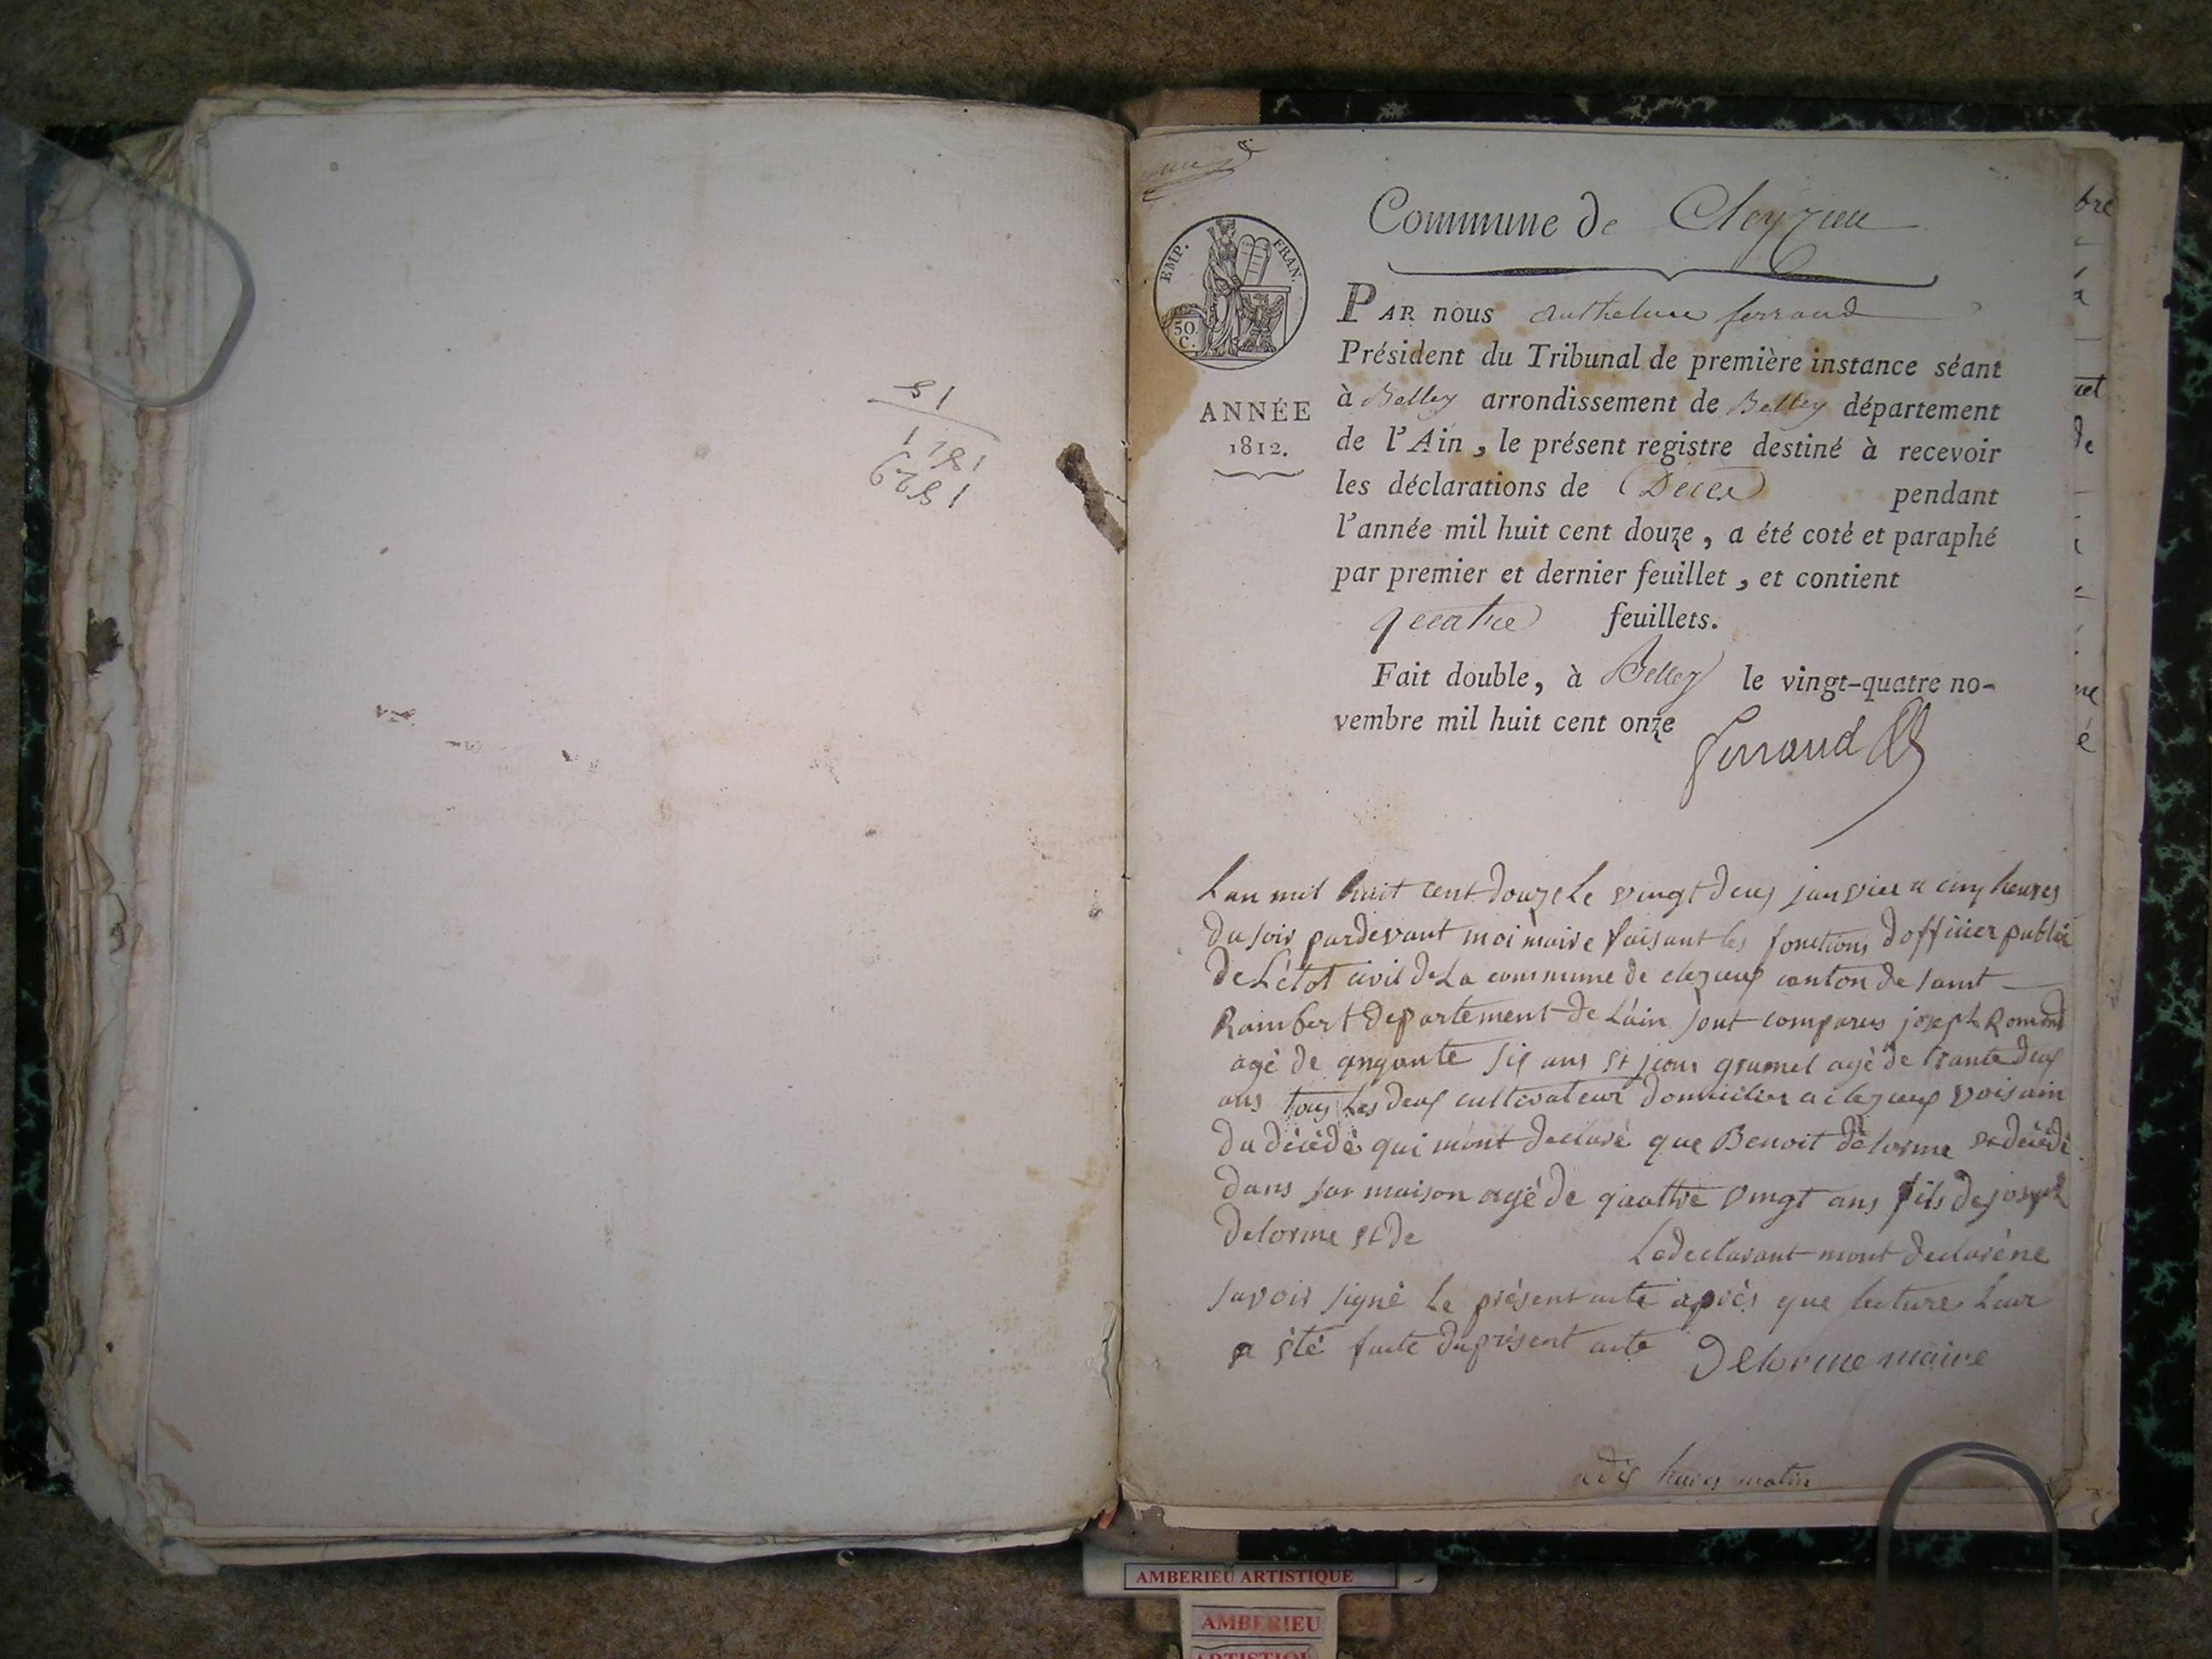 Commune de Cleyzieu
EMP. FRAN.
50.
C.
ANNÉE
1812.
PAR nous Anthelme ferrand
Président du Tribunal de première instance séant
à Belley arrondissement de Belley département
de l'Ain, le présent registre destiné à recevoir
les déclarations de Décès pendant
l'année mil huit cent douze, a été coté et paraphé
par premier et dernier feuillet, et contient
quatre feuillets.
Fait double, à Belley le vingt-quatre no-
vembre mil huit cent onze
ferrand
Lan mil huit cent douze Le vingt deux janvier a cinq heures
du soir pardevant moi maire faisant les fonctions dofficier public
de Létat civil de La commune de clezieux canton de saint
Rambert departement de Lain sont comparus joseph Romand
agé de cinqante six ans et jean gramel agé de trante deux
ans tous Les deux cultivateur domicilier a clezieux voisain
du décédé qui mont declaré que Benoit delorme et décédé
dans sa maison agé de quattre vingt ans fils de joseph
delorme et de Le declarant mont declaré ne
savoir signé Le présent acte après que lecture Leur
a été faite du présent acte Delorme maire
a dix heures matin
AMBERIEU ARTISTIQUE
AMBERIEU
ARTISTIQUE